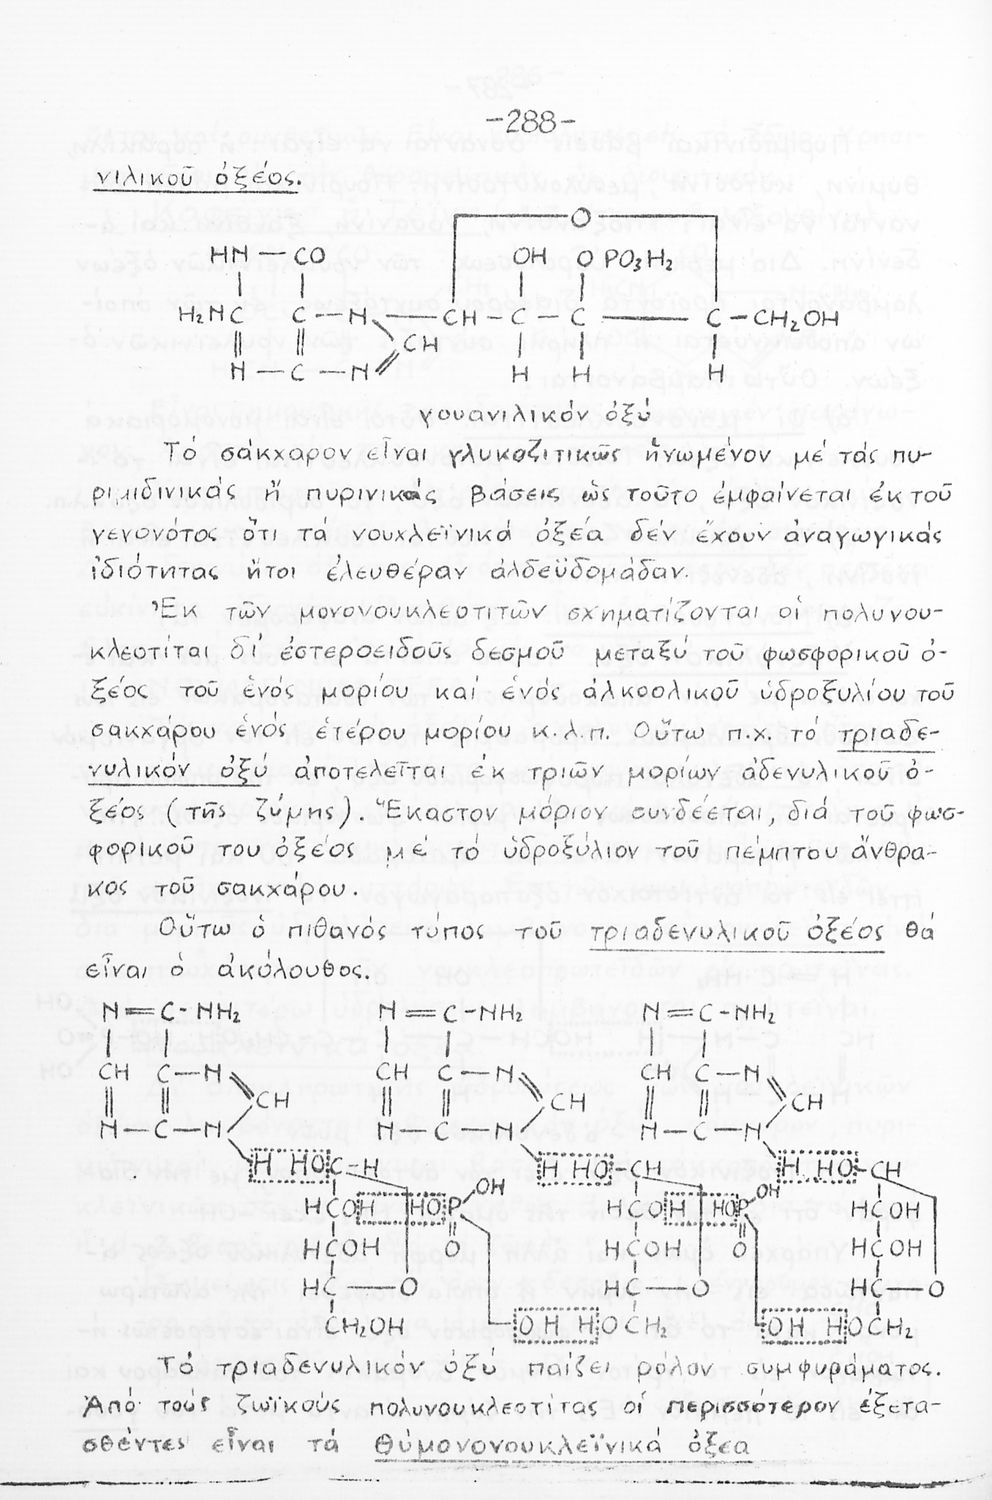 -288-
νιλικοῦ ὀξέος.
O
HN — CO OH O PO₃H₂
H₂N C C — N — CH — C — C — C — CH₂OH
CH
N — C — N H H H
γουανιλικόν ὀξύ
Τό σάκχαρον εἶναι γλυκοζιτικῶς ἡνωμένον μέ τάς πυ-
ριμιδινικάς ἤ πυρινικάς βάσεις ὡς τοῦτο ἐμφαίνεται ἐκ τοῦ
γεγονότος ὅτι τά νουχλεϊνικά ὀξέα δέν ἔχουν ἀναγωγικάς
ἰδιότητας ἤτοι ἐλευθέραν ἀλδεϋδομάδαν.
Ἐκ τῶν μονονουκλεοτιτῶν σχηματίζονται οἱ πολυνου-
κλεοτίται δι' ἐστεροειδοῦς δεσμοῦ μεταξύ τοῦ φωσφορικοῦ ὀ-
ξέος τοῦ ἑνός μορίου καί ἑνός ἀλκοολικοῦ ὑδροξυλίου τοῦ
σακχάρου ἑνός ἑτέρου μορίου κ.λ.π. Οὕτω π.χ. τό τριαδε-
νυλικόν ὀξύ ἀποτελεῖται ἐκ τριῶν μορίων ἀδενυλικοῦ ὀ-
ξέος (τῆς ζύμης). Ἕκαστον μόριον συνδέεται, διά τοῦ φωσ-
φορικοῦ του ὀξέος μέ τό ὑδροξύλιον τοῦ πέμπτου ἄνθρα-
κος τοῦ σακχάρου.
Οὕτω ὁ πιθανός τύπος τοῦ τριαδενυλικοῦ ὀξέος θά
εἶναι ὁ ἀκόλουθος.
N = C - NH₂ N = C - NH₂ N = C - NH₂
CH C — N CH C — N CH C — N
CH CH CH
N — C — N N — C — N N — C — N
H HO C — H H HO — CH H HO — CH
HCOH HO P OH HCOH HO P OH HCOH
HCOH O HCOH O HCOH
HC — O HC — O HC — O
CH₂OH OH HOCH₂ OH HOCH₂
Τό τριαδενυλικόν ὀξύ παίζει ρόλον συμφυράματος.
Ἀπό τούς ζωϊκούς πολυνουκλεοτίτας οἱ περισσότερον ἐξετα-
σθέντες εἶναι τά θυμονονουκλεϊνικά ὀξέα